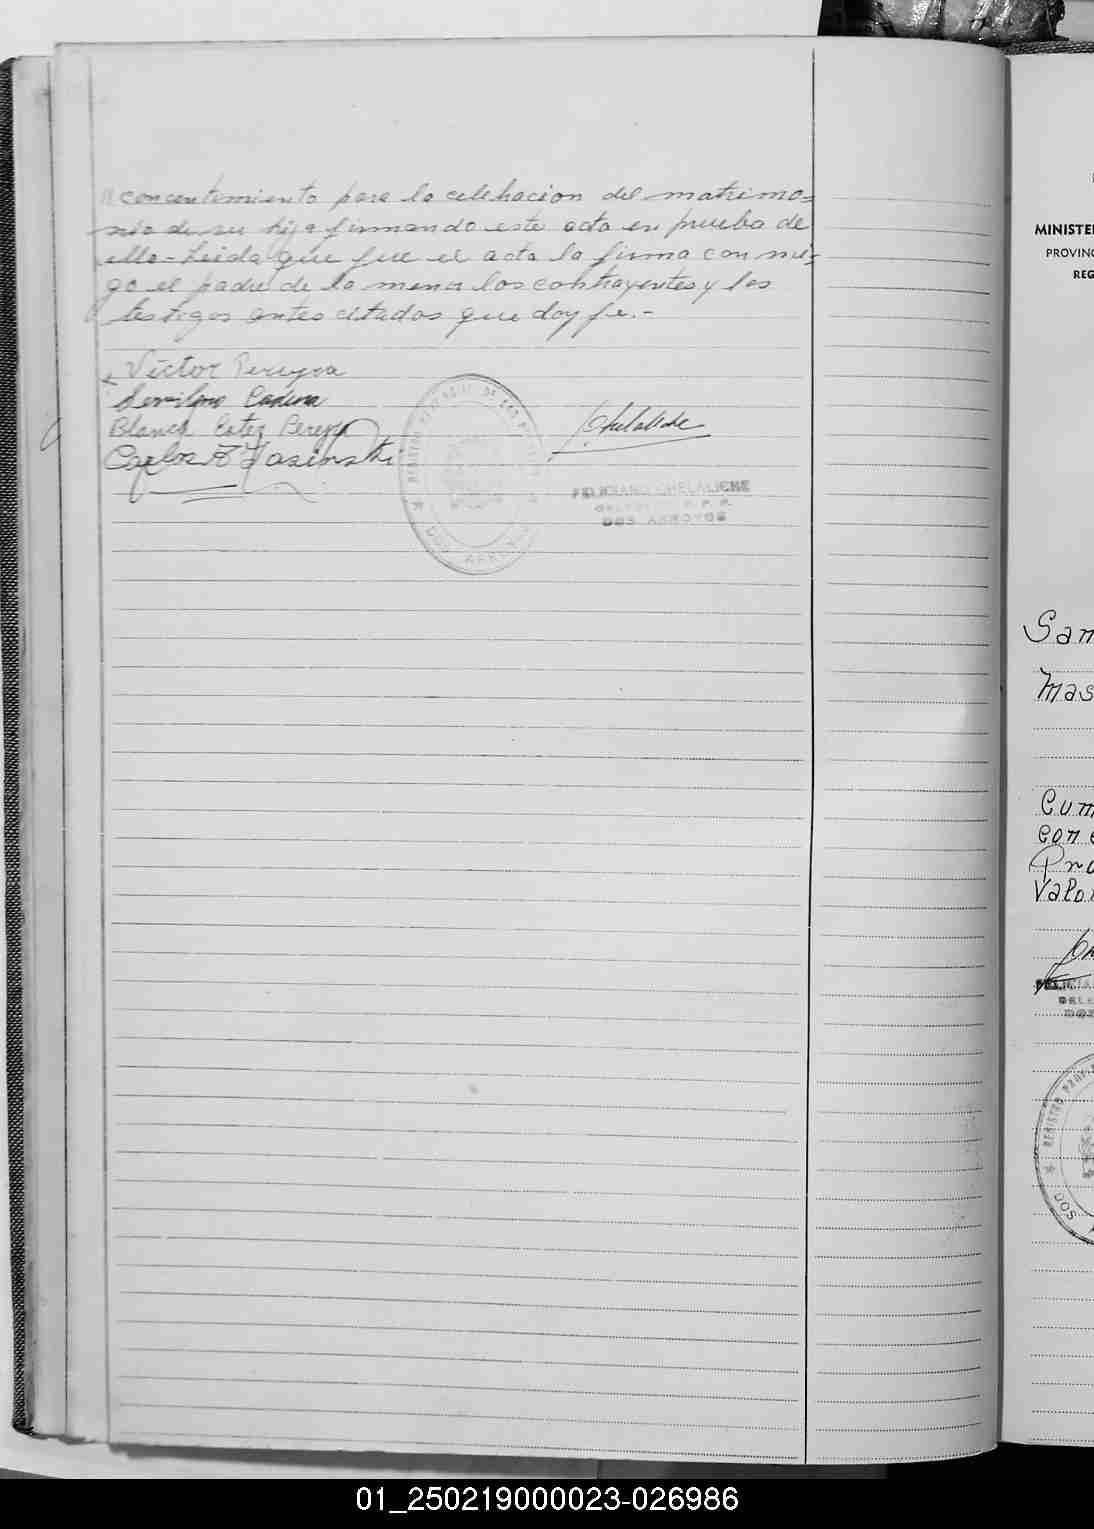 concentimiento para la celebracion del matrimo=
nio de su hija firmando este acta en prueba de
ello - Leida que fue el acta la firma con mi-
go el padre de la menor los contrayentes y los
testigos antes citados que doy fe.-
Victor Pereyra
Cadena
Blanca Ester Pereyra
Carlos A Jasinski
Chelaliche
FELICIANO CHELALICHE
DOS ARROYOS
REGISTRO PROVINCIAL DE LAS PERSONAS
DOS ARROYOS
MINISTE
PROVINC
REG
San
Mas
Cum
con
Pro
Valo
FELICIA
DELE
DOS
REGISTRO PROVIN
DOS
01_250219000023-026986